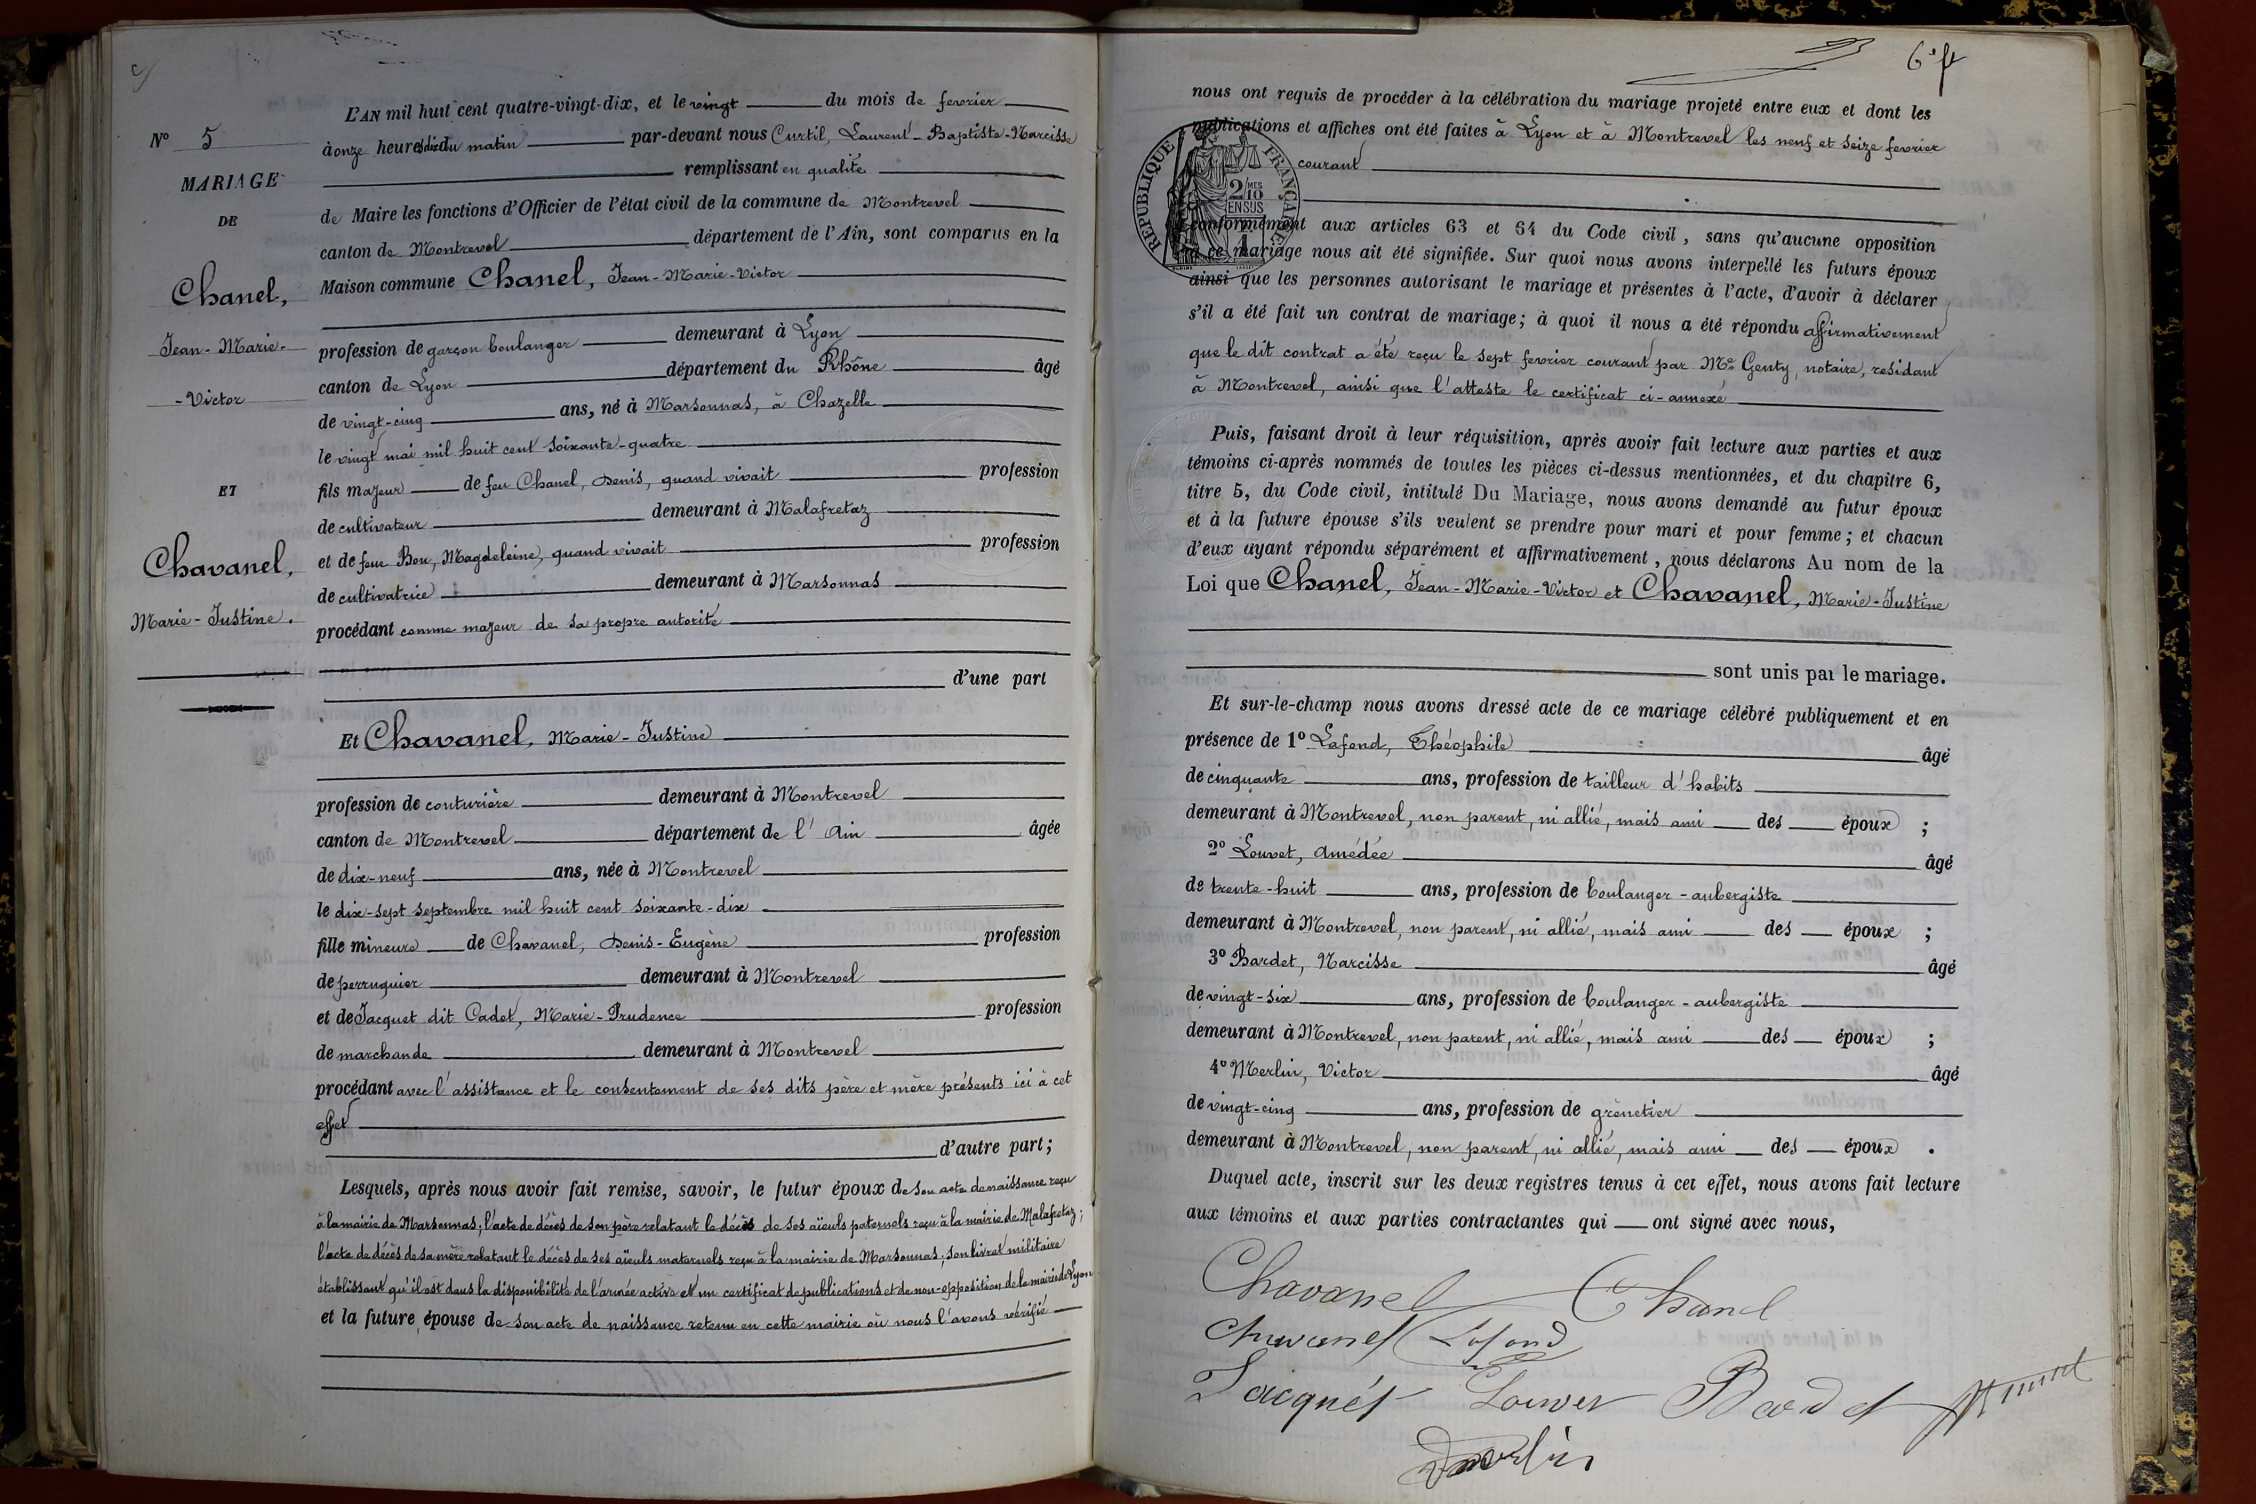 L'AN mil huit cent quatre-vingt-dix, et le vingt du mois de fevrier
à onze heures du matin par-devant nous Curtil, Laurent-Baptiste-Narcisse
remplissant en qualité
de Maire les fonctions d'Officier de l'état civil de la commune de Montrevel
canton de Montrevel département de l'Ain, sont comparus en la
Maison commune Chanel, Jean-Marie-Victor
profession de garçon boulanger demeurant à Lyon
canton de Lyon département du Rhône âgé
de vingt-cinq ans, né à Marsonnas, à Chazelle
le vingt mai mil huit cent soixante-quatre
fils majeur de feu Chanel, Denis, quand vivait profession
de cultivateur demeurant à Malafretaz
et de feue Magdeleine, quand vivait profession
de cultivatrice demeurant à Marsonnas
procédant comme majeur de sa propre autorité
d'une part
Et Chavanel, Marie-Justine
profession de couturière demeurant à Montrevel
canton de Montrevel département de l'Ain âgée
de dix-neuf ans, née à Montrevel
le dix-sept septembre mil huit cent soixante-dix
fille mineure de Chavanel, Denis-Eugène profession
de perruquier demeurant à Montrevel
et de Jacquet dit Cadet, Marie-Prudence profession
de marchande demeurant à Montrevel
procédant avec l'assistance et le consentement de ses dits père et mère présents ici à cet
effet
d'autre part;
Lesquels, après nous avoir fait remise, savoir, le futur époux de son acte de naissance reçu
à la mairie de Marsonnas; l'acte de décès de son père relatant le décès de ses aïeuls paternels reçu à la mairie de Malafretaz;
l'acte de décès de sa mère relatant le décès de ses aïeuls maternels reçu à la mairie de Marsonnas; son livret militaire
établissant qu'il est dans la disponibilité de l'armée active et un certificat de publications et de non-opposition de la mairie de Lyon
et la future épouse de son acte de naissance retenu en cette mairie où nous l'avons vérifié
N° 5
MARIAGE
DE
Chanel,
Jean-Marie-
-Victor
ET
Chavanel,
Marie-Justine.
6e ft
nous ont requis de procéder à la célébration du mariage projeté entre eux et dont les
publications et affiches ont été faites à Lyon et à Montrevel les neuf et seize fevrier
courant
RÉPUBLIQUE FRANÇAISE
2 MES
10
EN SUS
conformément aux articles 63 et 64 du Code civil, sans qu'aucune opposition
à ce mariage nous ait été signifiée. Sur quoi nous avons interpellé les futurs époux
ainsi que les personnes autorisant le mariage et présentes à l'acte, d'avoir à déclarer
s'il a été fait un contrat de mariage; à quoi il nous a été répondu affirmativement
que le dit contrat a été reçu le sept fevrier courant par Me Genty, notaire, residant
à Montrevel, ainsi que l'atteste le certificat ci-annexé
Puis, faisant droit à leur réquisition, après avoir fait lecture aux parties et aux
témoins ci-après nommés de toutes les pièces ci-dessus mentionnées, et du chapitre 6,
titre 5, du Code civil, intitulé Du Mariage, nous avons demandé au futur époux
et à la future épouse s'ils veulent se prendre pour mari et pour femme; et chacun
d'eux ayant répondu séparément et affirmativement, nous déclarons Au nom de la
Loi que Chanel, Jean-Marie-Victor et Chavanel, Marie-Justine
sont unis par le mariage.
Et sur-le-champ nous avons dressé acte de ce mariage célébré publiquement et en
présence de 1° Lafond, Théophile âgé
de cinquante ans, profession de tailleur d'habits
demeurant à Montrevel, non parent, ni allié, mais ami des époux ;
2° Louvet, Amédée âgé
de trente-huit ans, profession de boulanger-aubergiste
demeurant à Montrevel, non parent, ni allié, mais ami des époux ;
3° Bardet, Narcisse âgé
de vingt-six ans, profession de boulanger-aubergiste
demeurant à Montrevel, non parent, ni allié, mais ami des époux ;
4° Merlin, Victor âgé
de vingt-cinq ans, profession de grènetier
demeurant à Montrevel, non parent, ni allié, mais ami des époux .
Duquel acte, inscrit sur les deux registres tenus à cet effet, nous avons fait lecture
aux témoins et aux parties contractantes qui ont signé avec nous,
Chavanel Chanel
Chavanel Lafond
Jacquet Louvet Bardet
Merlin